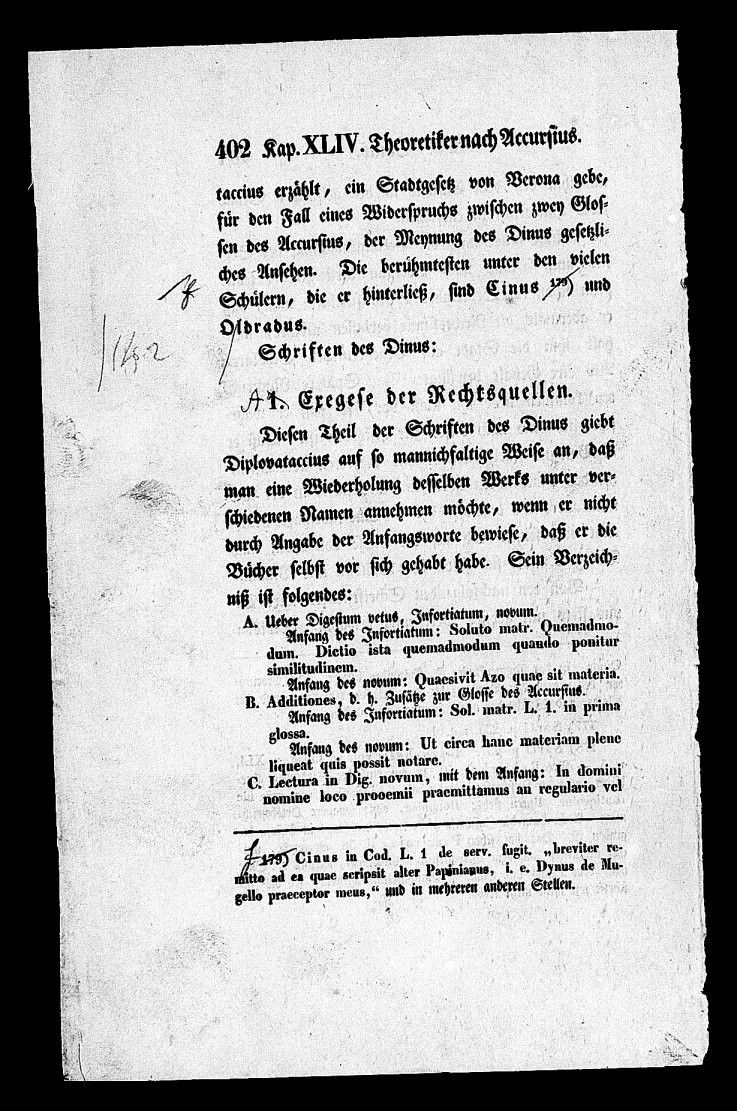 402 Kap. XLIV. Theoretiker nach Accursius.
taccius erzählt, ein Stadtgesetz von Verona gebe,
für den Fall eines Widerspruchs zwischen zwey Glos-
sen des Accursius, der Meynung des Dinus gesetzli-
ches Ansehen. Die berühmtesten unter den vielen
Schülern, die er hinterließ, sind Cinus 179) und
Oldradus.
Schriften des Dinus:
A 1. Exegese der Rechtsquellen.
Diesen Theil der Schriften des Dinus giebt
Diplovataccius auf so mannichfaltige Weise an, daß
man eine Wiederholung desselben Werks unter ver-
schiedenen Namen annehmen möchte, wenn er nicht
durch Angabe der Anfangsworte bewiese, daß er die
Bücher selbst vor sich gehabt habe. Sein Verzeich-
niß ist folgendes:
A. Ueber Digestum vetus, Infortiatum, novum.
Anfang des Infortiatum: Soluto matr. Quemadmo-
dum. Dictio ista quemadmodum quando ponitur
similitudinem.
Anfang des novum: Quaesivit Azo quae sit materia.
B. Additiones, d. h. Zusätze zur Glosse des Accursius.
Anfang des Infortiatum: Sol. matr. L. 1. in prima
glossa.
Anfang des novum: Ut circa hanc materiam plene
liqueat quis possit notare.
C. Lectura in Dig. novum, mit dem Anfang: In domini
nomine loco prooemii praemittamus an regulario vel
179) Cinus in Cod. L. 1 de serv. fugit. „breviter re-
mitto ad ea quae scripsit alter Papinianus, i. e. Dynus de Mu-
gello praeceptor meus,“ und in mehreren anderen Stellen.